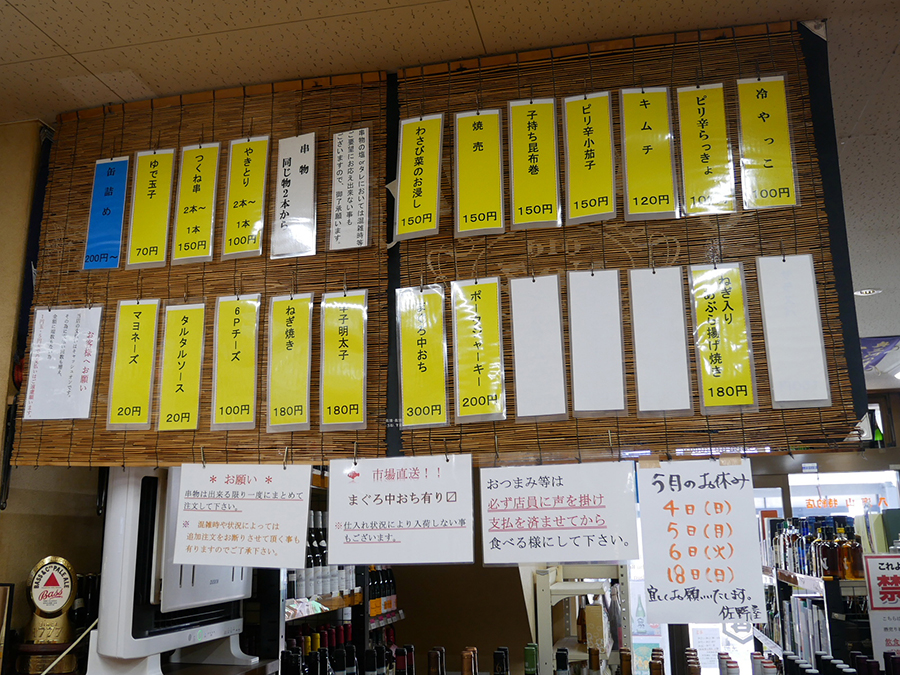 缶詰め
200円～
ゆで玉子
70円
つくね串
2本～
1本
150円
やきとり
2本～
1本
100円
串物
同じ物2本から
串物の塩 orタレにおいては混雑時等
ご要望にお応え出来ない事も
ございますので、御了承願います。
わさび菜のお浸し
150円
焼売
150円
子持ち昆布巻
150円
ピリ辛小茄子
150円
キムチ
120円
ピリ辛らっきょ
100円
冷やっこ
100円
お客様へお願い
マヨネーズ
20円
タルタルソース
20円
6Pチーズ
100円
ねぎ焼き
180円
辛子明太子
180円
まぐろ中おち
300円
ポークジャーキー
200円
ねぎ入り
あぶら揚げ焼き
180円
＊ お願い ＊
串物は出来る限り一度にまとめて
注文して下さい。
※ 混雑時や状況によっては
追加注文をお断りさせて頂く事も
有りますのでご了承下さい。
市場直送！！
まぐろ中おち有り〼
※仕入れ状況により入荷しない事
もございます。
おつまみ等は
必ず店員に声を掛け
支払を済ませてから
食べる様にして下さい。
5月のお休み
4日(日)
5日(月)
6日(火)
18日(日)
宜しくお願いいたします。
佐野屋
BASS & Co's PALE ALE
Bass
これよ
禁